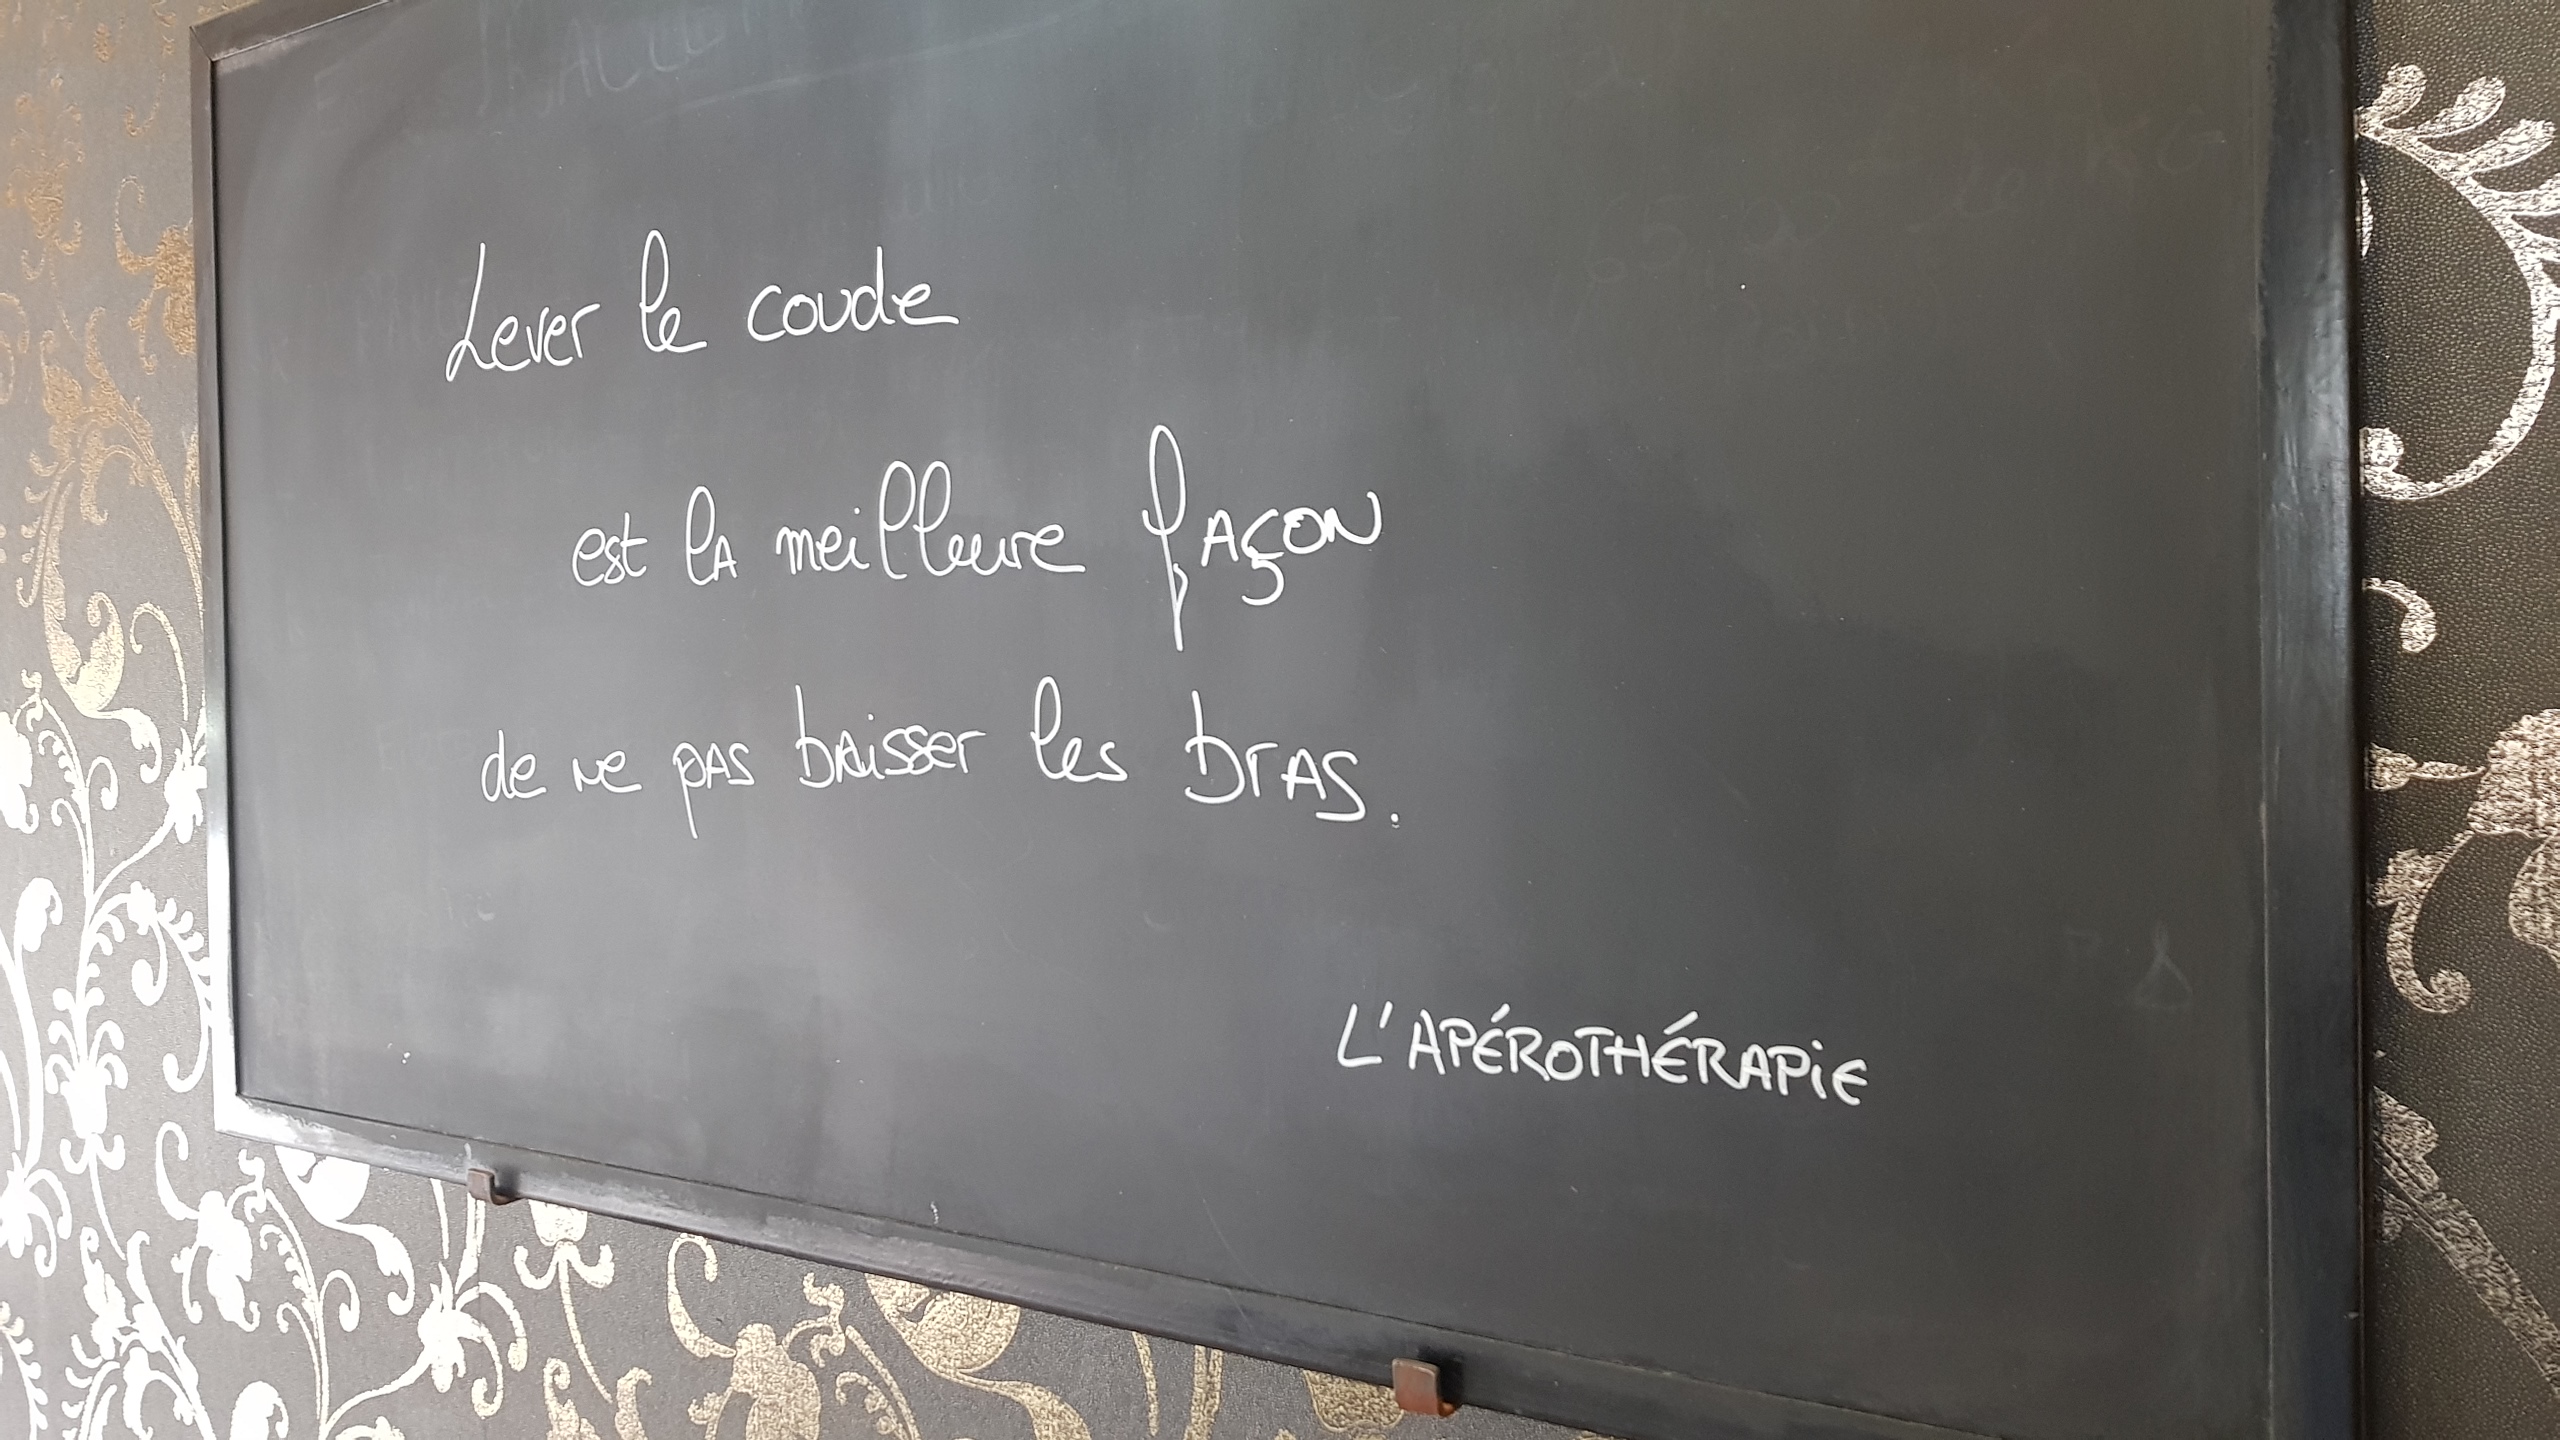 Lever le coude
est la meilleure façon
de ne pas baisser les bras.
L'APÉROTHÉRAPIE